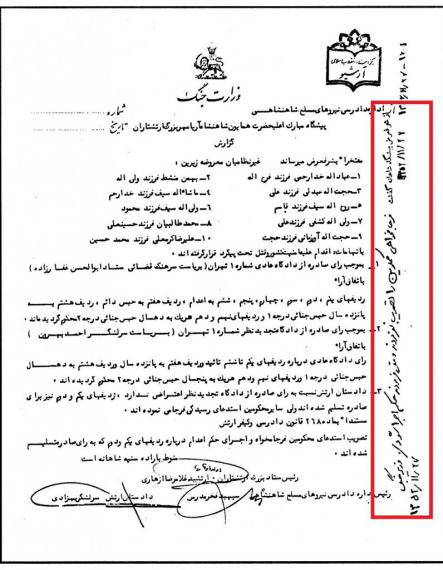 مرکز اسناد انقلاب اسلامی
آرشیو
وزارت جنگ
شماره
اداره دادرسی نیروهای مسلح شاهنشاهی
تاریخ
پیشگاه مبارک اعلیحضرت همایون شاهنشاه آریامهر بزرگ ارتشتاران
گزارش
مفتخرا" بشرفعرض میرساند غیرنظامیان معروضه زیرین :
۱- عبداله خدارحمی فرزند فرج اله
۲- بهمن منشط فرزند ولی اله
۳- حجت اله عبدلی فرزند علی
۴- ماشااله سیف فرزند خدارحم
۵- روح اله سیف فرزند قاسم
۶- ولی اله سیف فرزند محمود
۷- ولی اله کشفی فرزندعلی
۸- محمدطالبیان فرزند حسینعلی
۹- حجت اله آورزمانی فرزند حجت
۱۰- علیرضاکرمعلی فرزند محمد حسین
باتهامات: اقدام علیه امنیت کشور و قتل تحت پیگرد قرار گرفته اند .
بموجب رای صادره از دادگاه عادی شماره ۱ تهران ( بریاست سرهنگ قضائی ستاد ابوالحسن غفارزاده )
باتفاق آرا"
ردیفهای یکم ، دوم ، سوم ، چهارم ، پنجم ، ششم به اعدام ، ردیف هفتم به حبس دائم ، ردیف هشتم به
پانزده سال حبس جنائی درجه ۱ و ردیفهای نهم و دهم هریک به ده سال حبس جنائی درجه ۲ محکوم گردیده اند .
بموجب رای صادره از دادگاه تجدید نظر شماره ۱ تهران ( بریاست سرلشگر احمد بهرون )
باتفاق آرا"
رای دادگاه عادی درباره ردیفهای یکم تا ششم تائید و ردیف هفتم به پانزده سال و ردیف هشتم به ده سال
حبس جنائی درجه ۱ و ردیفهای نهم و دهم هریک به پنجسال حبس جنائی درجه ۲ محکوم گردیده اند .
دادستان ارتش نسبت به رای صادره از دادگاه تجدید نظر اعتراضی ندارد . ردیفهای یکم و دوم نیز برای
صادره تسلیم شده اند ولی سایر محکومین استدعای رسیدگی فرجامی نموده اند .
مستندا" بماده ۲۶۸ قانون دادرسی و کیفر ارتش
تصویب استدعای محکومین فرجامخواه و اجرای حکم اعدام درباره ردیفهای یکم و دوم که به رای صادره تسلیم
شده اند .
منوط باراده سنیه شاهانه است
رئیس ستاد بزرگ ارتشتاران - ارتشبد غلامرضا ازهاری
رئیس اداره دادرسی نیروهای مسلح شاهنشاهی سپهبد فخرمدرس
دادستان ارتش سرلشگر بهزادی
۱۳۵۲/۱۱/۲۷
۱۳۵۲/۱۱/۲۷